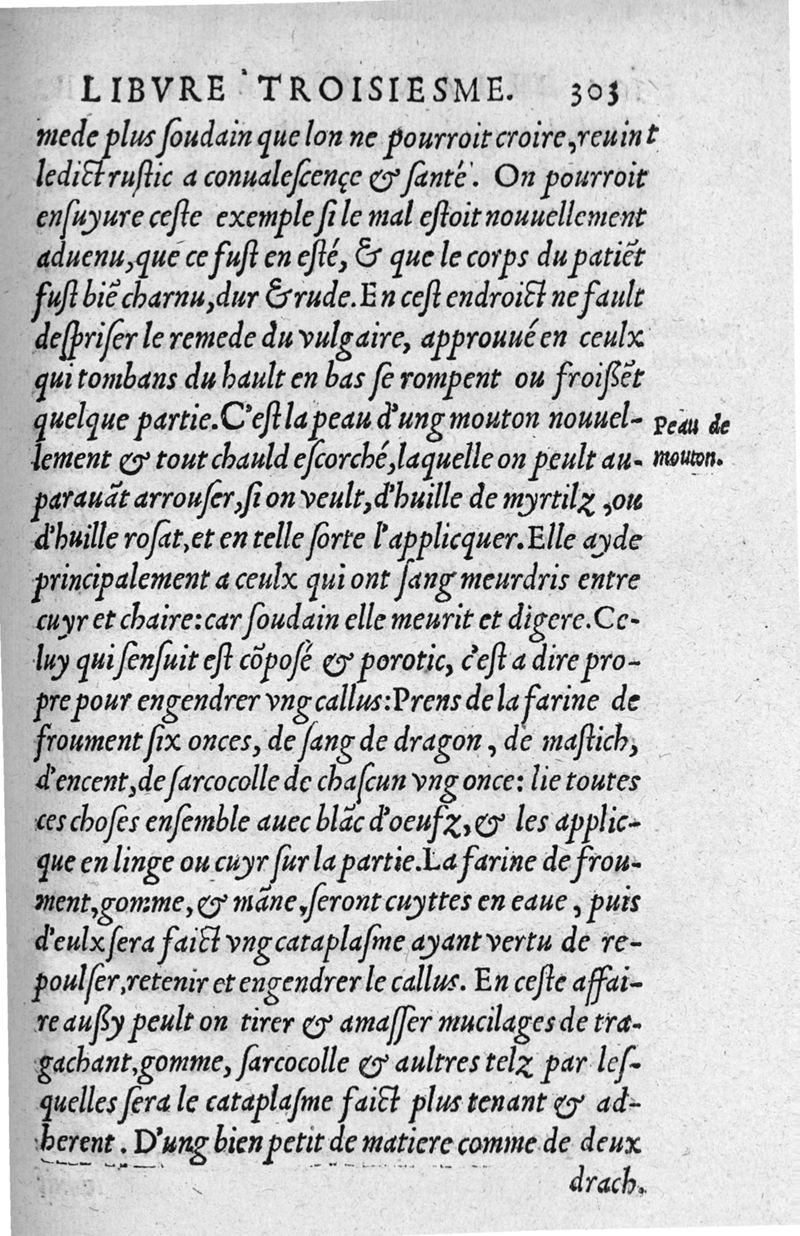 LIBVRE TROISIESME. 303
mede plus ſoudain que lon ne pourroit croire, reuint
ledict ruſtic a conualeſcençe & ſanté. On pourroit
enſuyure ceſte exemple ſi le mal eſtoit nouuellement
aduenu, que ce fuſt en eſté, & que le corps du patiēt
fuſt biē charnu, dur & rude. En ceſt endroict ne fault
deſpriſer le remede du vulgaire, approuué en ceulx
qui tombans du hault en bas ſe rompent ou froiſſēt
quelque partie. C'eſt la peau d'ung mouton nouuel-
lement & tout chauld eſcorché, laquelle on peult au-
Peau de
mouton.
parauāt arrouſer, ſi on veult, d'huille de myrtilz, ou
d'huille roſat, et en telle ſorte l'applicquer. Elle ayde
principalement a ceulx qui ont ſang meurdris entre
cuyr et chaire: car ſoudain elle meurit et digere. Ce-
luy qui ſenſuit eſt cōpoſé & porotic, c'eſt a dire pro-
pre pour engendrer vng callus: Prens de la farine de
froument ſix onces, de ſang de dragon, de maſtich,
d'encent, de ſarcocolle de chaſcun vng once: lie toutes
ces choſes enſemble auec blāc d'oeufz, & les applic-
que en linge ou cuyr ſur la partie. La farine de frou-
ment, gomme, & māne, ſeront cuyttes en eaue, puis
d'eulx ſera faict vng cataplaſme ayant vertu de re-
poulſer, retenir et engendrer le callus. En ceſte affai-
re auſſy peult on tirer & amaſſer mucilages de tra-
gachant, gomme, ſarcocolle & aultres telz par leſ-
quelles ſera le cataplaſme faict plus tenant & ad-
herent. D'ung bien petit de matiere comme de deux
drach.